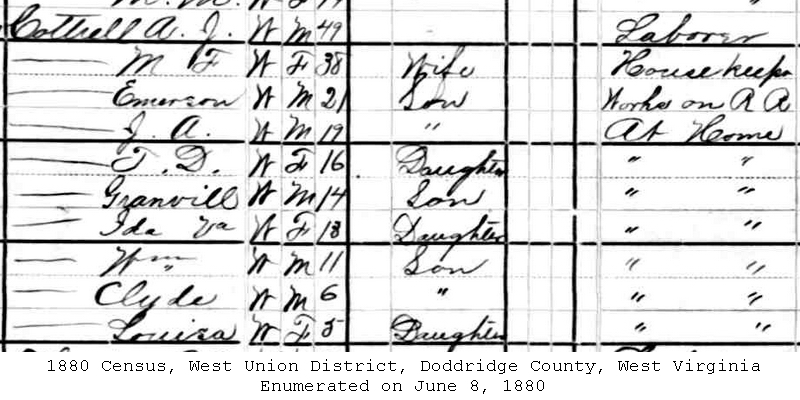 Cottrell A. J. W M 49 Laborer
M F W F 38 Wife Housekeeper
Emerson W M 21 Son Works on R R
J. A. W M 19 " At Home
T. D. W F 16 Daughter " "
Granvill W M 14 Son " "
Ida Va W F 13 Daughter " "
Wm W M 11 Son " "
Clyde W M 6 " " "
Louiza W F 5 Daughter " "
1880 Census, West Union District, Doddridge County, West Virginia
Enumerated on June 8, 1880